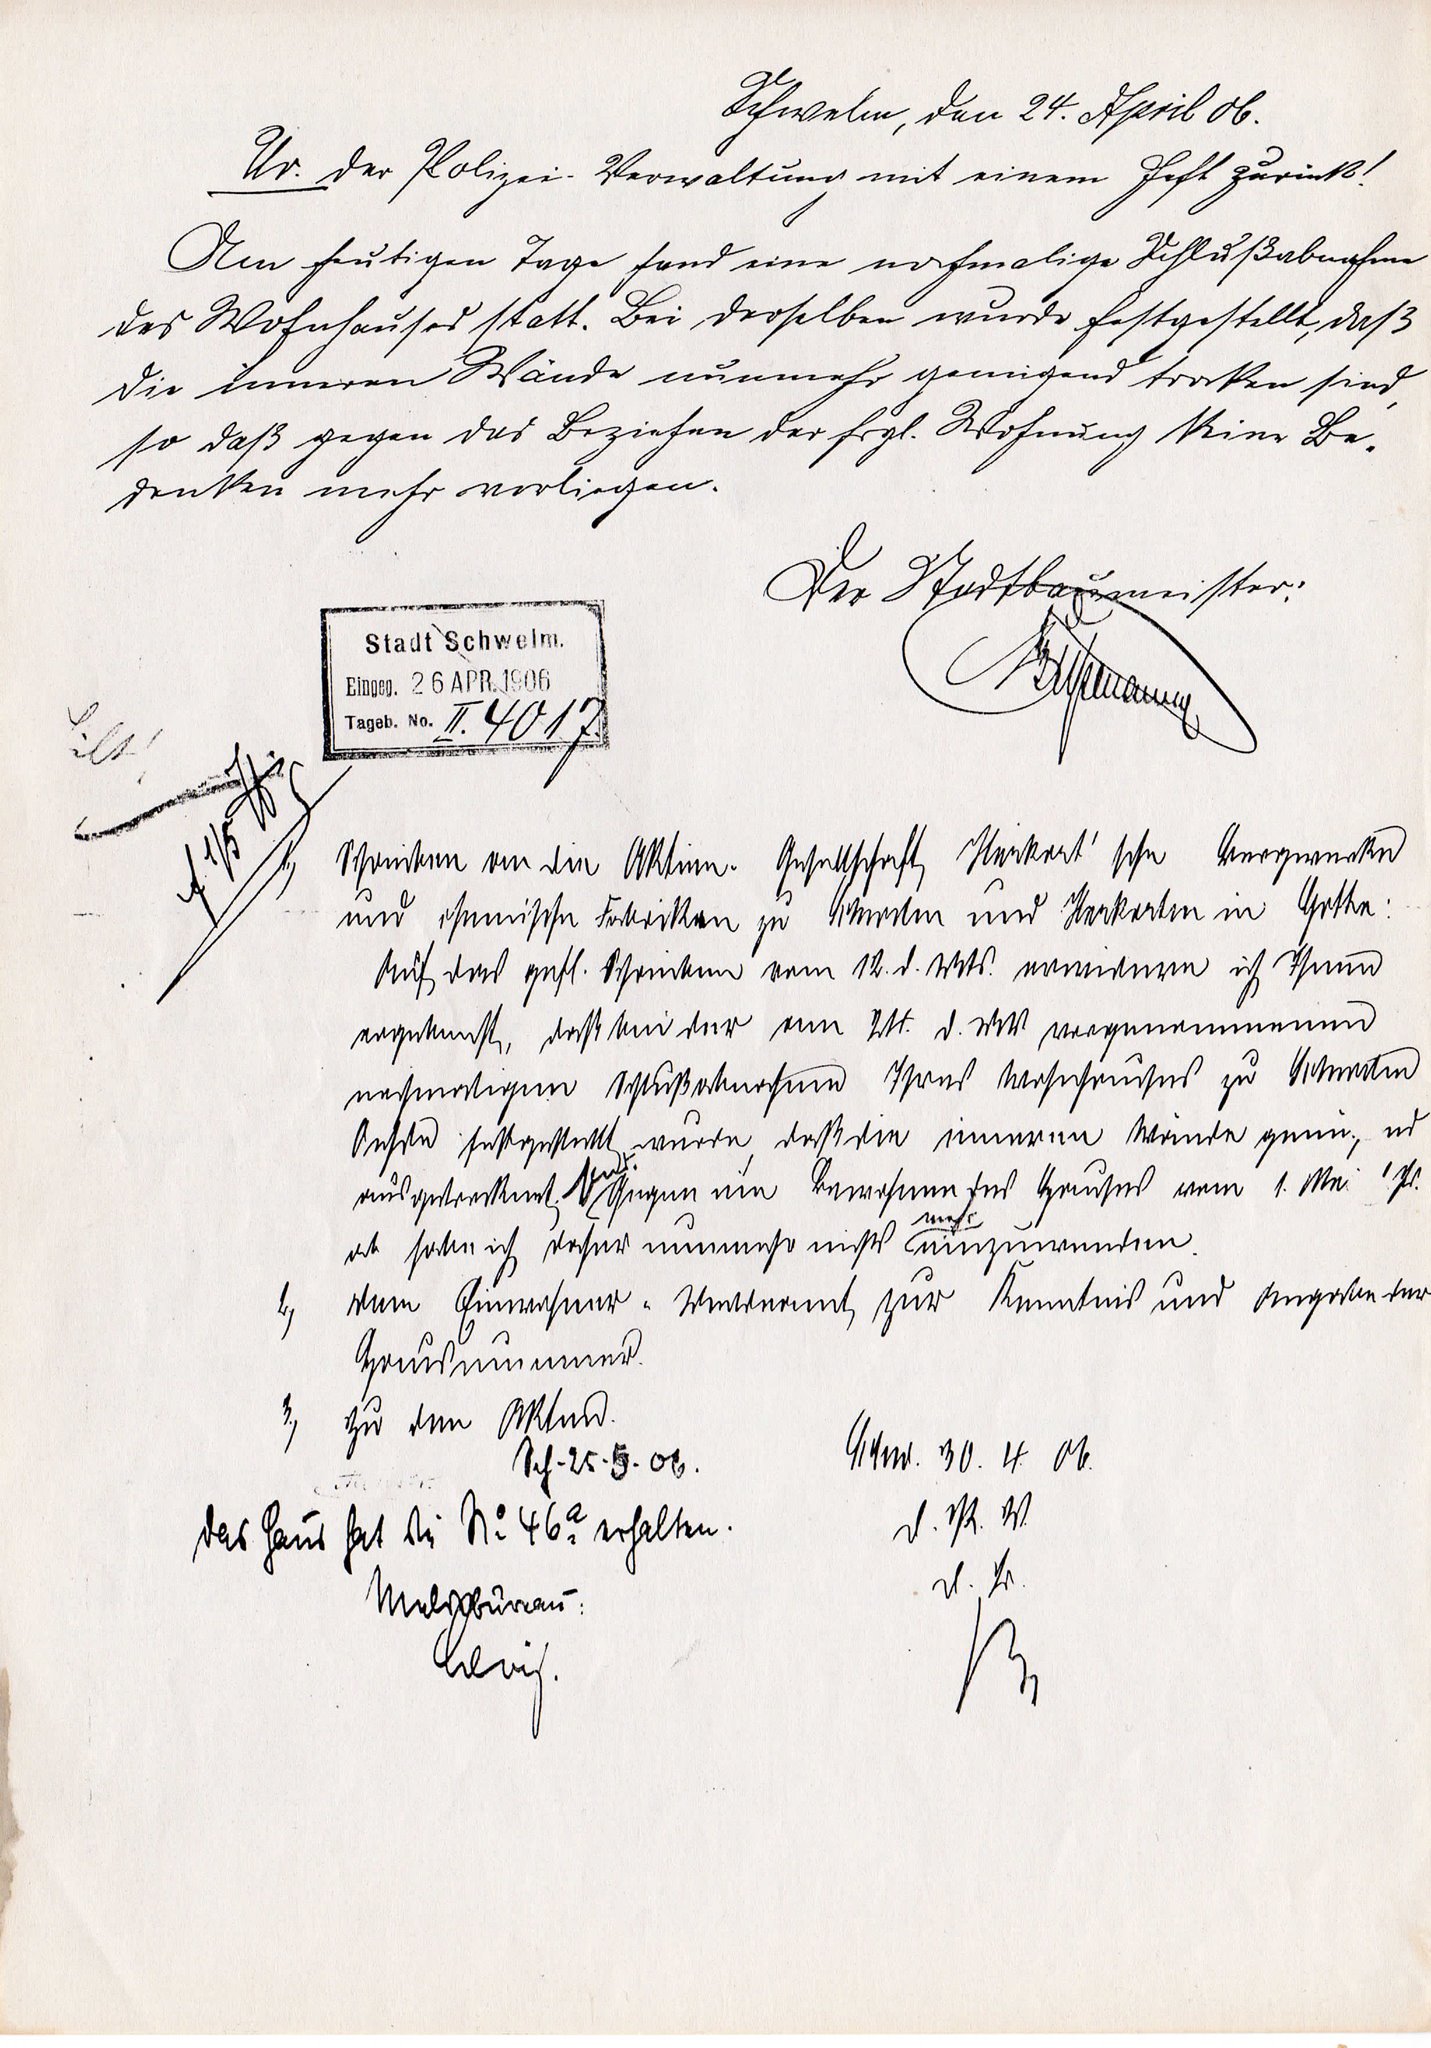 Schwelm, den 24. April 06.
Ur. der Polizei-Verwaltung mit einem Heft zurück!
Am heutigen Tage fand eine nochmalige Schlußabnahme
des Wohnhauses statt. Bei derselben wurde festgestellt, daß
die inneren Wände nunmehr genügend trocken sind,
so daß gegen das Beziehen der frgl. Wohnung keine Be-
denken mehr vorliegen.
Der Stadtbaumeister:
Stadt Schwelm.
Eingeg. 26 APR. 1906
Tageb. No. II. 4017.
Eilt!
1/5
1, Schreiben an die Aktien-Gesellschaft Harkort'sche Bergwerke
und chemische Fabriken zu Schwelm und Harkorten in Gotha:
Auf das gefl. Schreiben vom 12. d. Mts. erwidere ich Ihnen
ergebenst, daß bei der am 24. d. Mts vorgenommenen
nochmaligen Schlußabnahme Ihres Wohnhauses zu Schwelm
festgestellt wurde, daß die inneren Wände genü-
ausgetrocknet sind. Gegen ein Bewohnen des Hauses vom 1. Mai d. Js.
ab habe ich daher nunmehr nichts mehr einzuwenden.
2, dem Einwohner-Meldeamt zur Kenntnis und Angabe der
Hausnummer.
3, zu den Akten.
Schw. 30. 4. 06.
d. P. V.
d. B.
Sch. 25.5.06.
das Haus hat die No. 46a erhalten.
Meldebüreau: